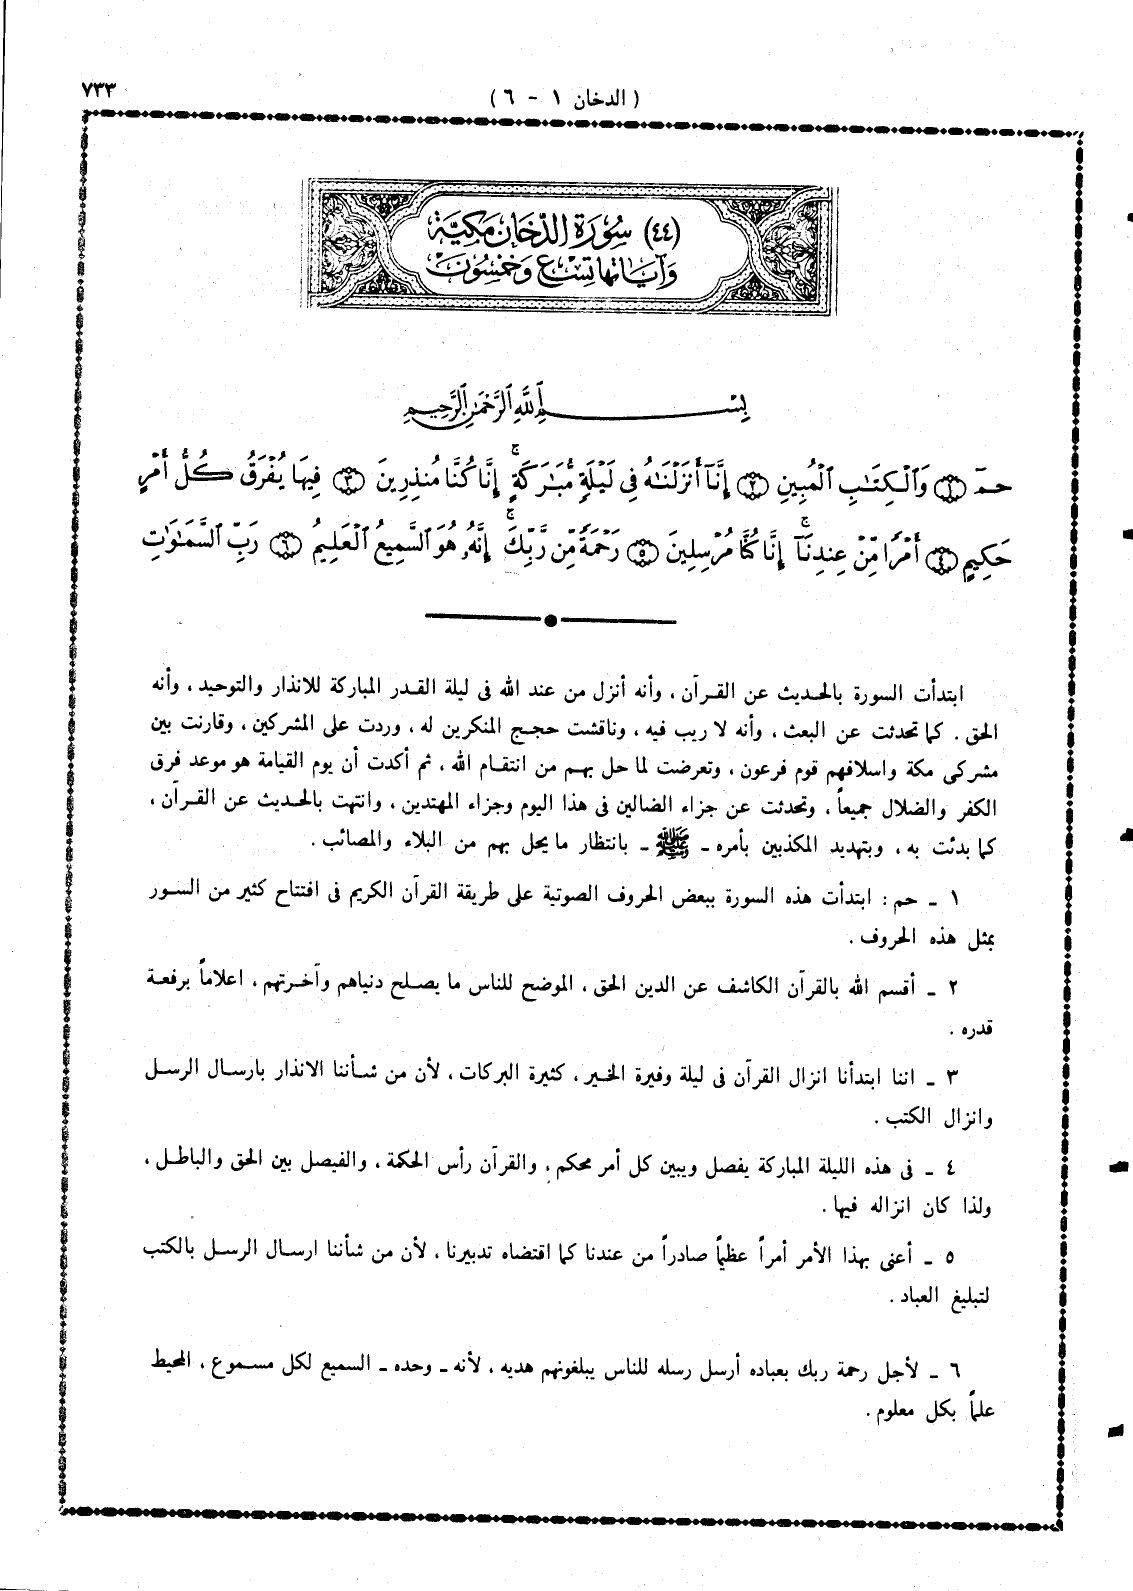 ٧٣٣
( الدخان ١ - ٦ )
(٤٤) سُورَة الدّخَان مَكيَّة
وَآيَاتهَا تِسْع وَخَمْسُونَ
بِسْمِ ٱللَّهِ ٱلرَّحْمَٰنِ ٱلرَّحِيمِ
حمٓ ١ وَٱلْكِتَٰبِ ٱلْمُبِينِ ٢ إِنَّآ أَنزَلْنَٰهُ فِى لَيْلَةٍ مُّبَٰرَكَةٍ ۚ إِنَّا كُنَّا مُنذِرِينَ ٣ فِيهَا يُفْرَقُ كُلُّ أَمْرٍ
حَكِيمٍ ٤ أَمْرًا مِّنْ عِندِنَآ ۚ إِنَّا كُنَّا مُرْسِلِينَ ٥ رَحْمَةً مِّن رَّبِّكَ ۚ إِنَّهُۥ هُوَ ٱلسَّمِيعُ ٱلْعَلِيمُ ٦ رَبِّ ٱلسَّمَٰوَٰتِ
ابتدأت السورة بالحديث عن القرآن ، وأنه أنزل من عند الله فى ليلة القدر المباركة للانذار والتوحيد ، وأنه
الحق . كما تحدثت عن البعث ، وأنه لا ريب فيه ، وناقشت حجج المنكرين له ، وردت على المشركين ، وقارنت بين
مشركى مكة واسلافهم قوم فرعون ، وتعرضت لما حل بهم من انتقام الله ، ثم أكدت أن يوم القيامة هو موعد فرق
الكفر والضلال جميعاً ، وتحدثت عن جزاء الضالين فى هذا اليوم وجزاء المهتدين ، وانتهت بالحديث عن القرآن ،
كما بدئت به ، وبتهديد المكذبين بأمره ـ ﷺ ـ بانتظار ما يحل بهم من البلاء والمصائب .
١ ـ حم : ابتدأت هذه السورة ببعض الحروف الصوتية على طريقة القرآن الكريم فى افتتاح كثير من السور
بمثل هذه الحروف .
٢ ـ أقسم الله بالقرآن الكاشف عن الدين الحق ، الموضح للناس ما يصلح دنياهم وآخرتهم ، اعلاماً برفعة
قدره .
٣ ـ اننا ابتدأنا انزال القرآن فى ليلة وفيرة الخير ، كثيرة البركات ، لأن من شأننا الانذار بارسال الرسل
وانزال الكتب .
٤ ـ فى هذه الليلة المباركة يفصل ويبين كل أمر محكم ، والقرآن رأس الحكمة ، والفيصل بين الحق والباطل ،
ولذا كان انزاله فيها .
٥ ـ أعنى بهذا الأمر أمراً عظيماً صادراً من عندنا كما اقتضاه تدبيرنا ، لأن من شأننا ارسال الرسل بالكتب
لتبليغ العباد .
٦ ـ لأجل رحمة ربك بعباده أرسل رسله للناس يبلغونهم هديه ، لأنه ـ وحده ـ السميع لكل مسموع ، المحيط
علماً بكل معلوم .